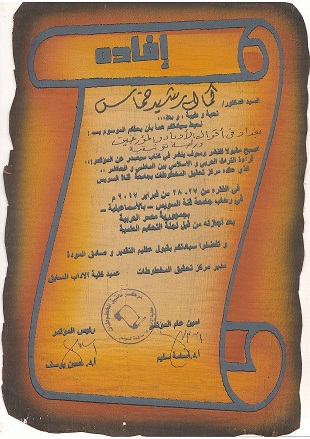 إفاده
السيد الدكتور/ كمال رشيد خماس
تحية وطيبة ، و بعد...
نحيط سيادتكم علماً بأن بحثكم الموسوم بـ:
بغداد في أقوال الأدباء والمؤرخين
دراسة توثيقية
أصبح مقبولا للنشر وسوف ينشر في كتاب سيصدر عن المؤتمر:
قراءة التراث العربي و الاسلامي بين الماضي و الحاضر
الذي عقده مركز تحقيق المخطوطات بجامعة قناة السويس
في الفترة من ٢٧ـ ٢٨ من فبراير ٢٠١٧م
في رحاب جامعة قناة السويس – بالأسماعيلية –
بجمهورية مصر العربية
بعد اجازته من قبل لجنة التحكيم العلمية
و تفضلوا سيادتكم بقبول عظيم التقدير و صادق المودة
مدير مركز تحقيق المخطوطات عميد كلية الآداب السابق
أمين عام المؤتمر رئيس المؤتمر
أ.د. أسامة سليم أ.د. حسن يوسف